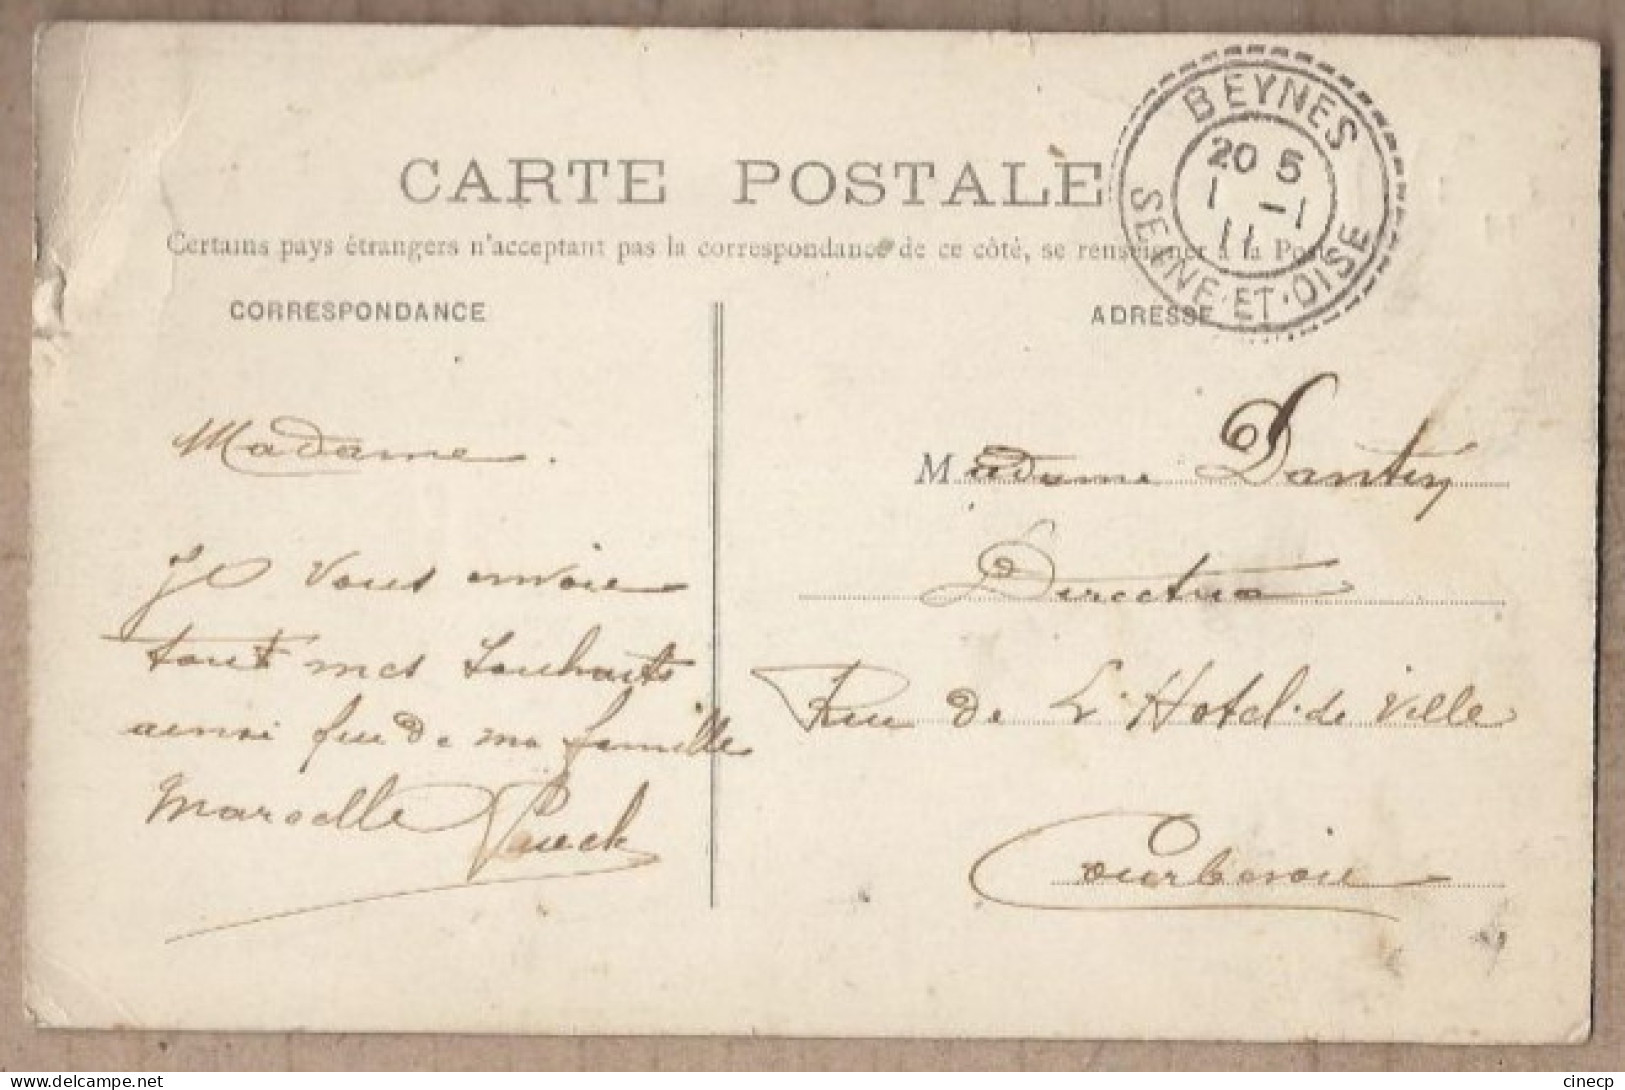 CARTE POSTALE
Certains pays étrangers n'acceptant pas la correspondance de ce côté, se renseigner à la Poste
BEYNES
20 5
1 -1
11
SEINE·ET·OISE
CORRESPONDANCE
ADRESSE
Madame.
Je vous envoie
tout mes souhaits
ainsi que de ma famille
Marcelle
Madame Dantin
Directrice
Rue de L'Hotel de Ville
Courbevoie
cinecp